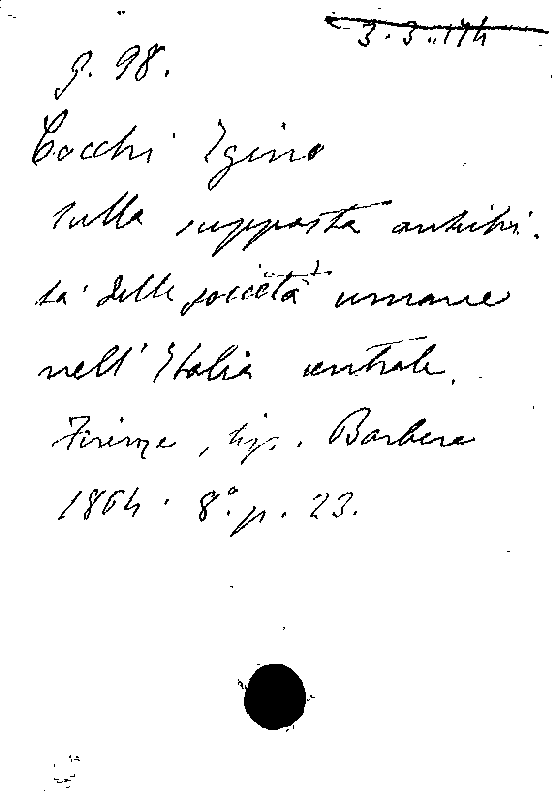 3.3.174
g. 98.
Cocchi Igino
sulla supposta antichi-
tà delle società umane
nell'Italia centrale.
Firenze, tip. Barbera
1864. 8°. p. 23.